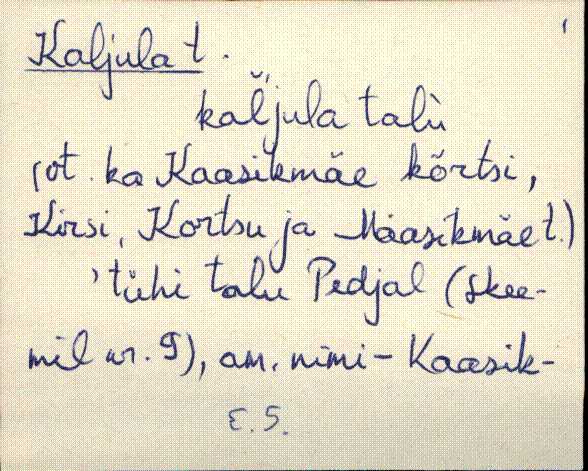 1
Kaljula t.
kal̆'jula talù
(vt. ka Kaasikmäe kõrtsi,
Kirsi, Kortsu ja Maasikmäe t.)
'tühi talu Pedjal (skee-
mil nr. 9), am. nimi - Kaasik-
E.S.